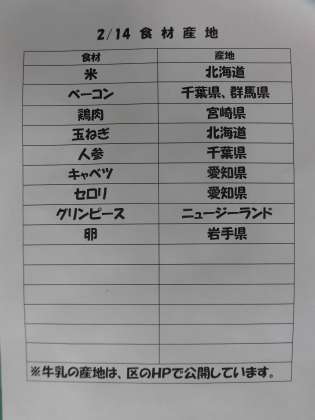 2/14 食材産地
食材 産地
米 北海道
ベーコン 千葉県、群馬県
鶏肉 宮崎県
玉ねぎ 北海道
人参 千葉県
キャベツ 愛知県
セロリ 愛知県
グリンピース ニュージーランド
卵 岩手県
※牛乳の産地は、区のHPで公開しています。